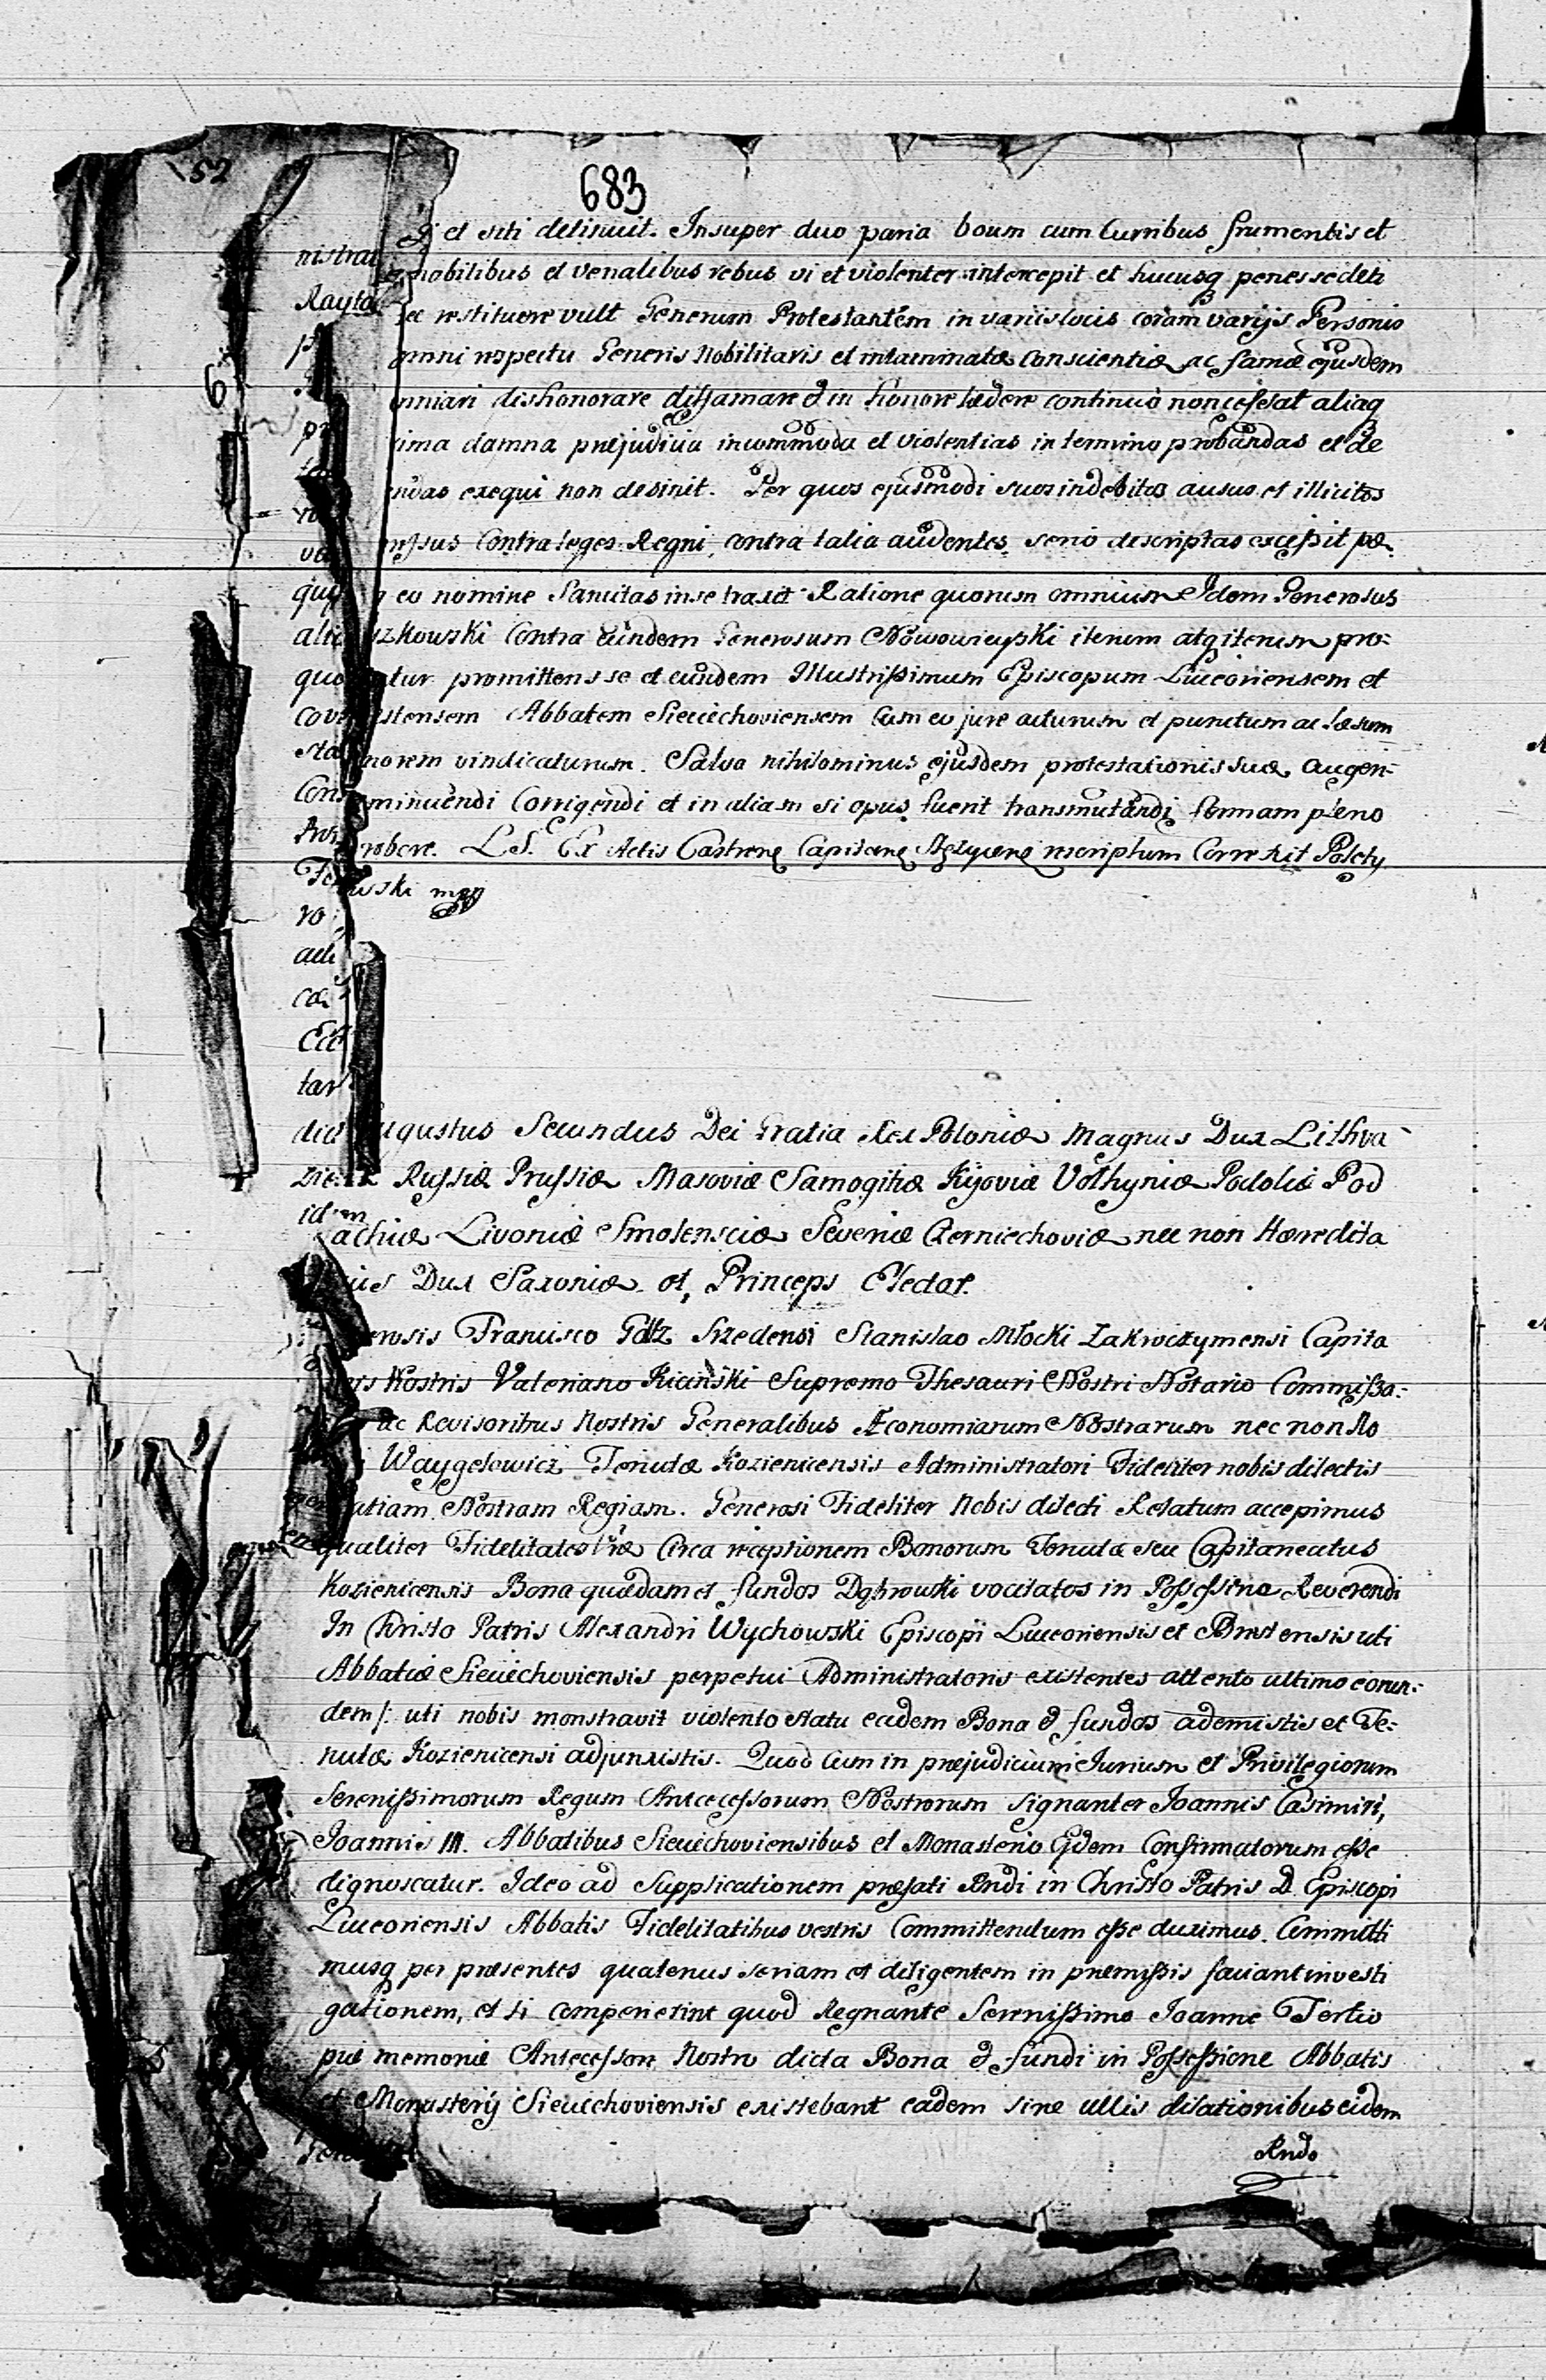 52
683
et siti detinuit. Insuper duo paria boum cum Curribus frumentis et
mobilibus et venalibus rebus vi et violenter intercepit et hucusq penes se deti
nec restituere vult Generum Protestantem in variis locis coram varijs Personis
omni respectu Generis Nobilitaris et intaminatæ conscientiæ ac famæ ejusdem
dishonorare diffamare & in honore lædere continuò non cessat aliaq
damna præjudicia incommoda et violentias in termino probandas et de
exequi non desinit. Per quos ejusmodi suos indebitos ausus et illicitos
Contra leges Regni, contra talia audentes serio descriptas excessit pœ
eo nomine Sancitas in se traxit Ratione quorum omnium Idem Generosus
szkowski Contra eundem Generosum Nowowieyski iterum atq iterum pro-
promittens se et eundem Illustrissimum Episcopum Luceoriensem et
Abbatem Sieciechoviensem Cum eo jure acturum et punctum ac læsum
vindicaturum. Salva nihilominus ejusdem protestationis suæ augen-
minuendi Corrigendi et in aliam si opus fuerit transmutandi formam pleno
robore. L.S. Ex Actis Castren Capitan Stezycen rescriptum Correxit Polety
wski mpp
Augustus Secundus Dei Gratia Rex Poloniæ Magnus Dux Lithva
Russiæ Prussiæ Masoviæ Samogitiæ Kijoviæ Volhyniæ Podoliæ Pod
lachiæ Livoniæ Smolensciæ Severiæ Czerniechoviæ nec non Hæredita
rius Dux Saxoniæ et Princeps Elector.
Francisco Goltz Srzedensi Stanislao Młocki Zakroczymensi Capita
Nostris Valeriano Kiciński Supremo Thesauri Nostri Notario Commissa-
ac Revisoribus Nostris Generalibus Æconomiarum Nostrarum nec non No
Waygelowicz Tenutæ Kozienicensis Administratori Fideliter nobis dilectis
Gratiam Nostram Regiam. Generosi Fideliter Nobis dilecti Relatum accepimus
qualiter Fidelitates Vræ Circa receptionem Bonorum Tenutæ seu Capitaneatus
Kozienicensis Bona quædam et fundos Dąbrowki vocitatos in Possessione Reverendi
In Christo Patris Alexandri Wychowski Episcopi Luceoriensis et Brestensis uti
Abbatiæ Sieciechoviensis perpetui Administratoris existentes attento ultimo eorun-
dem /: uti nobis monstravit violento statu eadem Bona & fundos ademistis et Te-
nutæ Kozienicensi adjunxistis. Quod Cum in præjudicium Jurium et Privilegiorum
Serenissimorum Regum Antecessorum Nostrorum Signanter Joannis Casimiri,
Joannis III. Abbatibus Sieciechoviensibus et Monasterio Eidem Confirmatorum esse
dignoscatur. Ideo ad Supplicationem præfati Rndi in Christo Patris D. Episcopi
Luceoriensis Abbatis Fidelitatibus vestris Committendum esse duximus. Committi
musq per præsentes quatenus seriam et diligentem in præmissis faciant investi
gationem, et si compererint quod Regnante Serenissimo Joanne Tertio
piæ memoriæ Antecessore Nostro dicta Bona & fundi in Possessione Abbatis
et Monasterij Sieciechoviensis existebant eadem sine ullis dilationibus eidem
Rndo